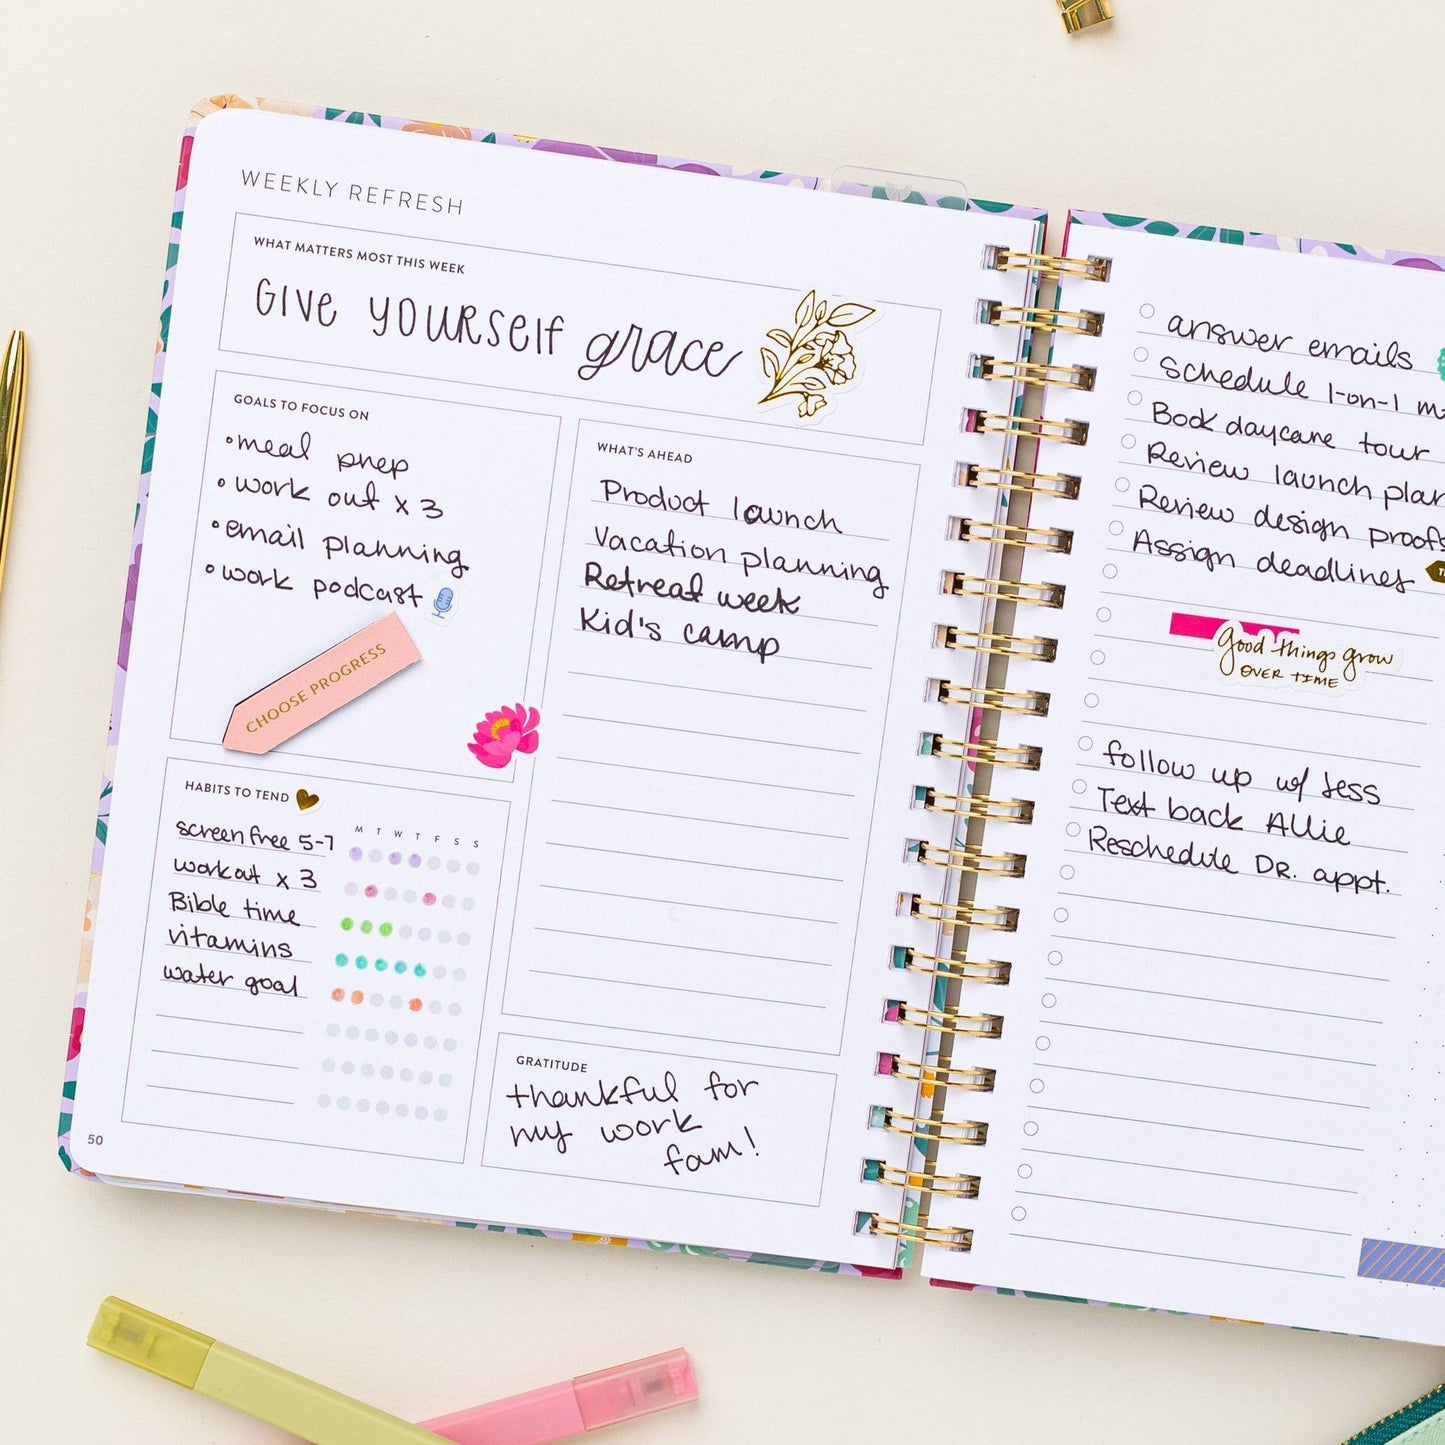 WEEKLY REFRESH
WHAT MATTERS MOST THIS WEEK
GIVE YOURSELF grace
GOALS TO FOCUS ON
•meal prep
•work out x 3
•email planning
•work podcast
CHOOSE PROGRESS
HABITS TO TEND
M T W T F S S
screen free 5-7
workout x 3
Bible time
vitamins
water goal
50
WHAT'S AHEAD
Product launch
Vacation planning
Retreat week
Kid's camp
GRATITUDE
thankful for
my work
fam!
answer emails
Schedule 1-on-1
Book daycare tour
Review launch
Review design proofs
Assign deadlines
good things grow
OVER TIME
follow up w/ Jess
Text back Allie
Reschedule DR. appt.